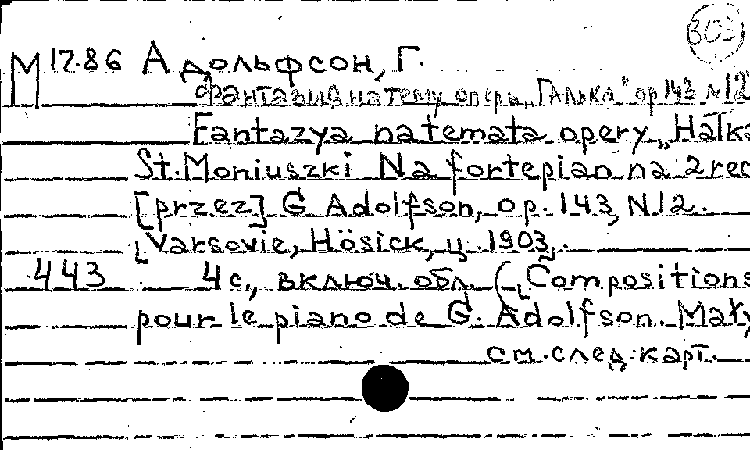 803
M 17.86 Адольфсон, Г.
Фантазия на тему оперы „Галька" ор 143 N12
Fantazya na temata opery „Halka
St. Moniuszki Na fortepian na 2 rec
[przez] G Adolfson, op. 143, N.12.
[Varsovie, Hösick, ц. 1903].
443 4 с., включ. обл. ([Compositions
pour le piano de G. Adolfson. Mały
см. след. карт.